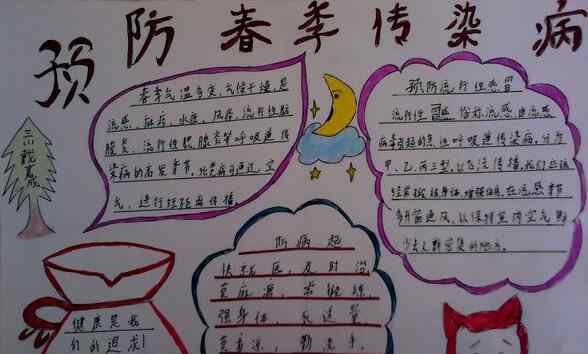 预防春季传染病
春季气温多变,气候干燥,是
流感、麻疹、水痘、风疹、流行性腮
腺炎、流行性脑膜炎等呼吸道传
染病的高发季节。
气、进行短距离传播。
预防流行性感冒
流行性感冒俗称流感,由流感
病毒引起的急性呼吸道传染病,分为
甲、乙、丙三型,以飞沫传播,我们应该
经常锻炼身体,增强体质,在流感季
多开窗通风,以保持室内空气新
少去人群密集的地方。
三(1)
防病起
及时治
莫麻痹,常锻炼,
强身体,
勤洗手,
健康是我
们的追求!